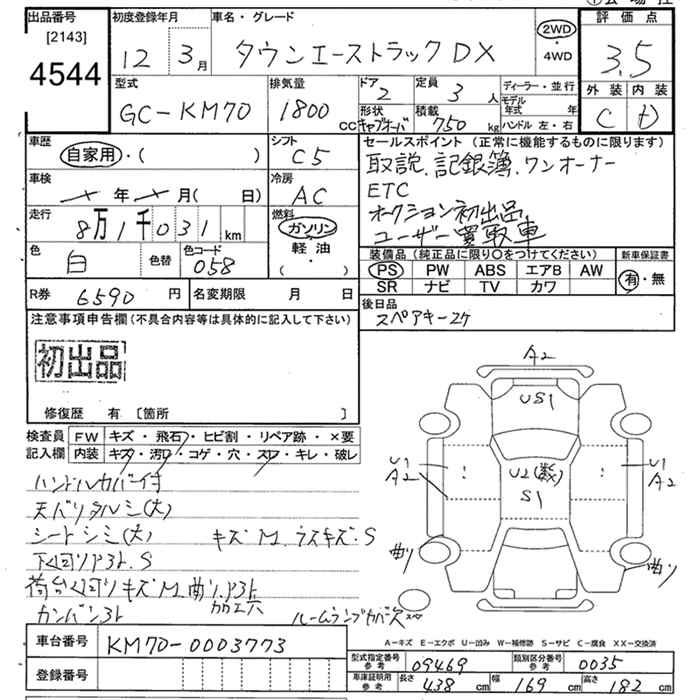 ①会場 社
出品番号 初度登録年月 車名・グレード 評価点
[2143]
4544
12 3月 タウンエーストラック DX 2WD・4WD 3.5
型式 排気量 ドア 定員 ディーラー・並行 外装 内装
GC-KM70 1800cc 2 3人 モデル年式 年 C D
形状 積載
キャブオーバ 750kg ハンドル 左・右
車歴 シフト セールスポイント (正常に機能するものに限ります)
自家用・( ) C5 取説、記録簿、ワンオーナー
車検 年 月( 日) 冷房 AC ETC
走行 燃料 オークション初出品
8万1千031km ガソリン ユーザー買取車
軽油
・( )
色 白 色替 色コード 058
装備品 (純正品に限り○をつけてください) 新車保証書
PS PW ABS エアB AW 有・無
SR ナビ TV カワ
R券 6590円 名変期限 月 日 後日品
スペアキー2ケ
注意事項申告欄 (不具合内容等は具体的に記入して下さい)
初出品
修復歴 有 [箇所 ]
A2
US1
U2(数)
S1
U1
A2
U1
A2
曲り
曲り
検査員 FW キズ・飛石・ヒビ割・リペア跡・×要
記入欄 内装 キズ・汚れ・コゲ・穴・スレ・キレ・破レ
ハンドルカバー付
天バリタルミ(大)
シートシミ(大) キズM、ラスキズ・S
下回りアト、S
荷台回りキズM曲り、アト
加工穴
カンバンアト ルームランプカバー欠
スペ
A-キズ E-エクボ U-凹み W-補修跡 S-サビ C-腐食 XX-交換済
車台番号 KM70-0003773
登録番号
型式指定番号 参考 09469 類別区分番号 参考 0035
車庫証明用 参考 長さ 438cm 幅 169cm 高さ 182cm